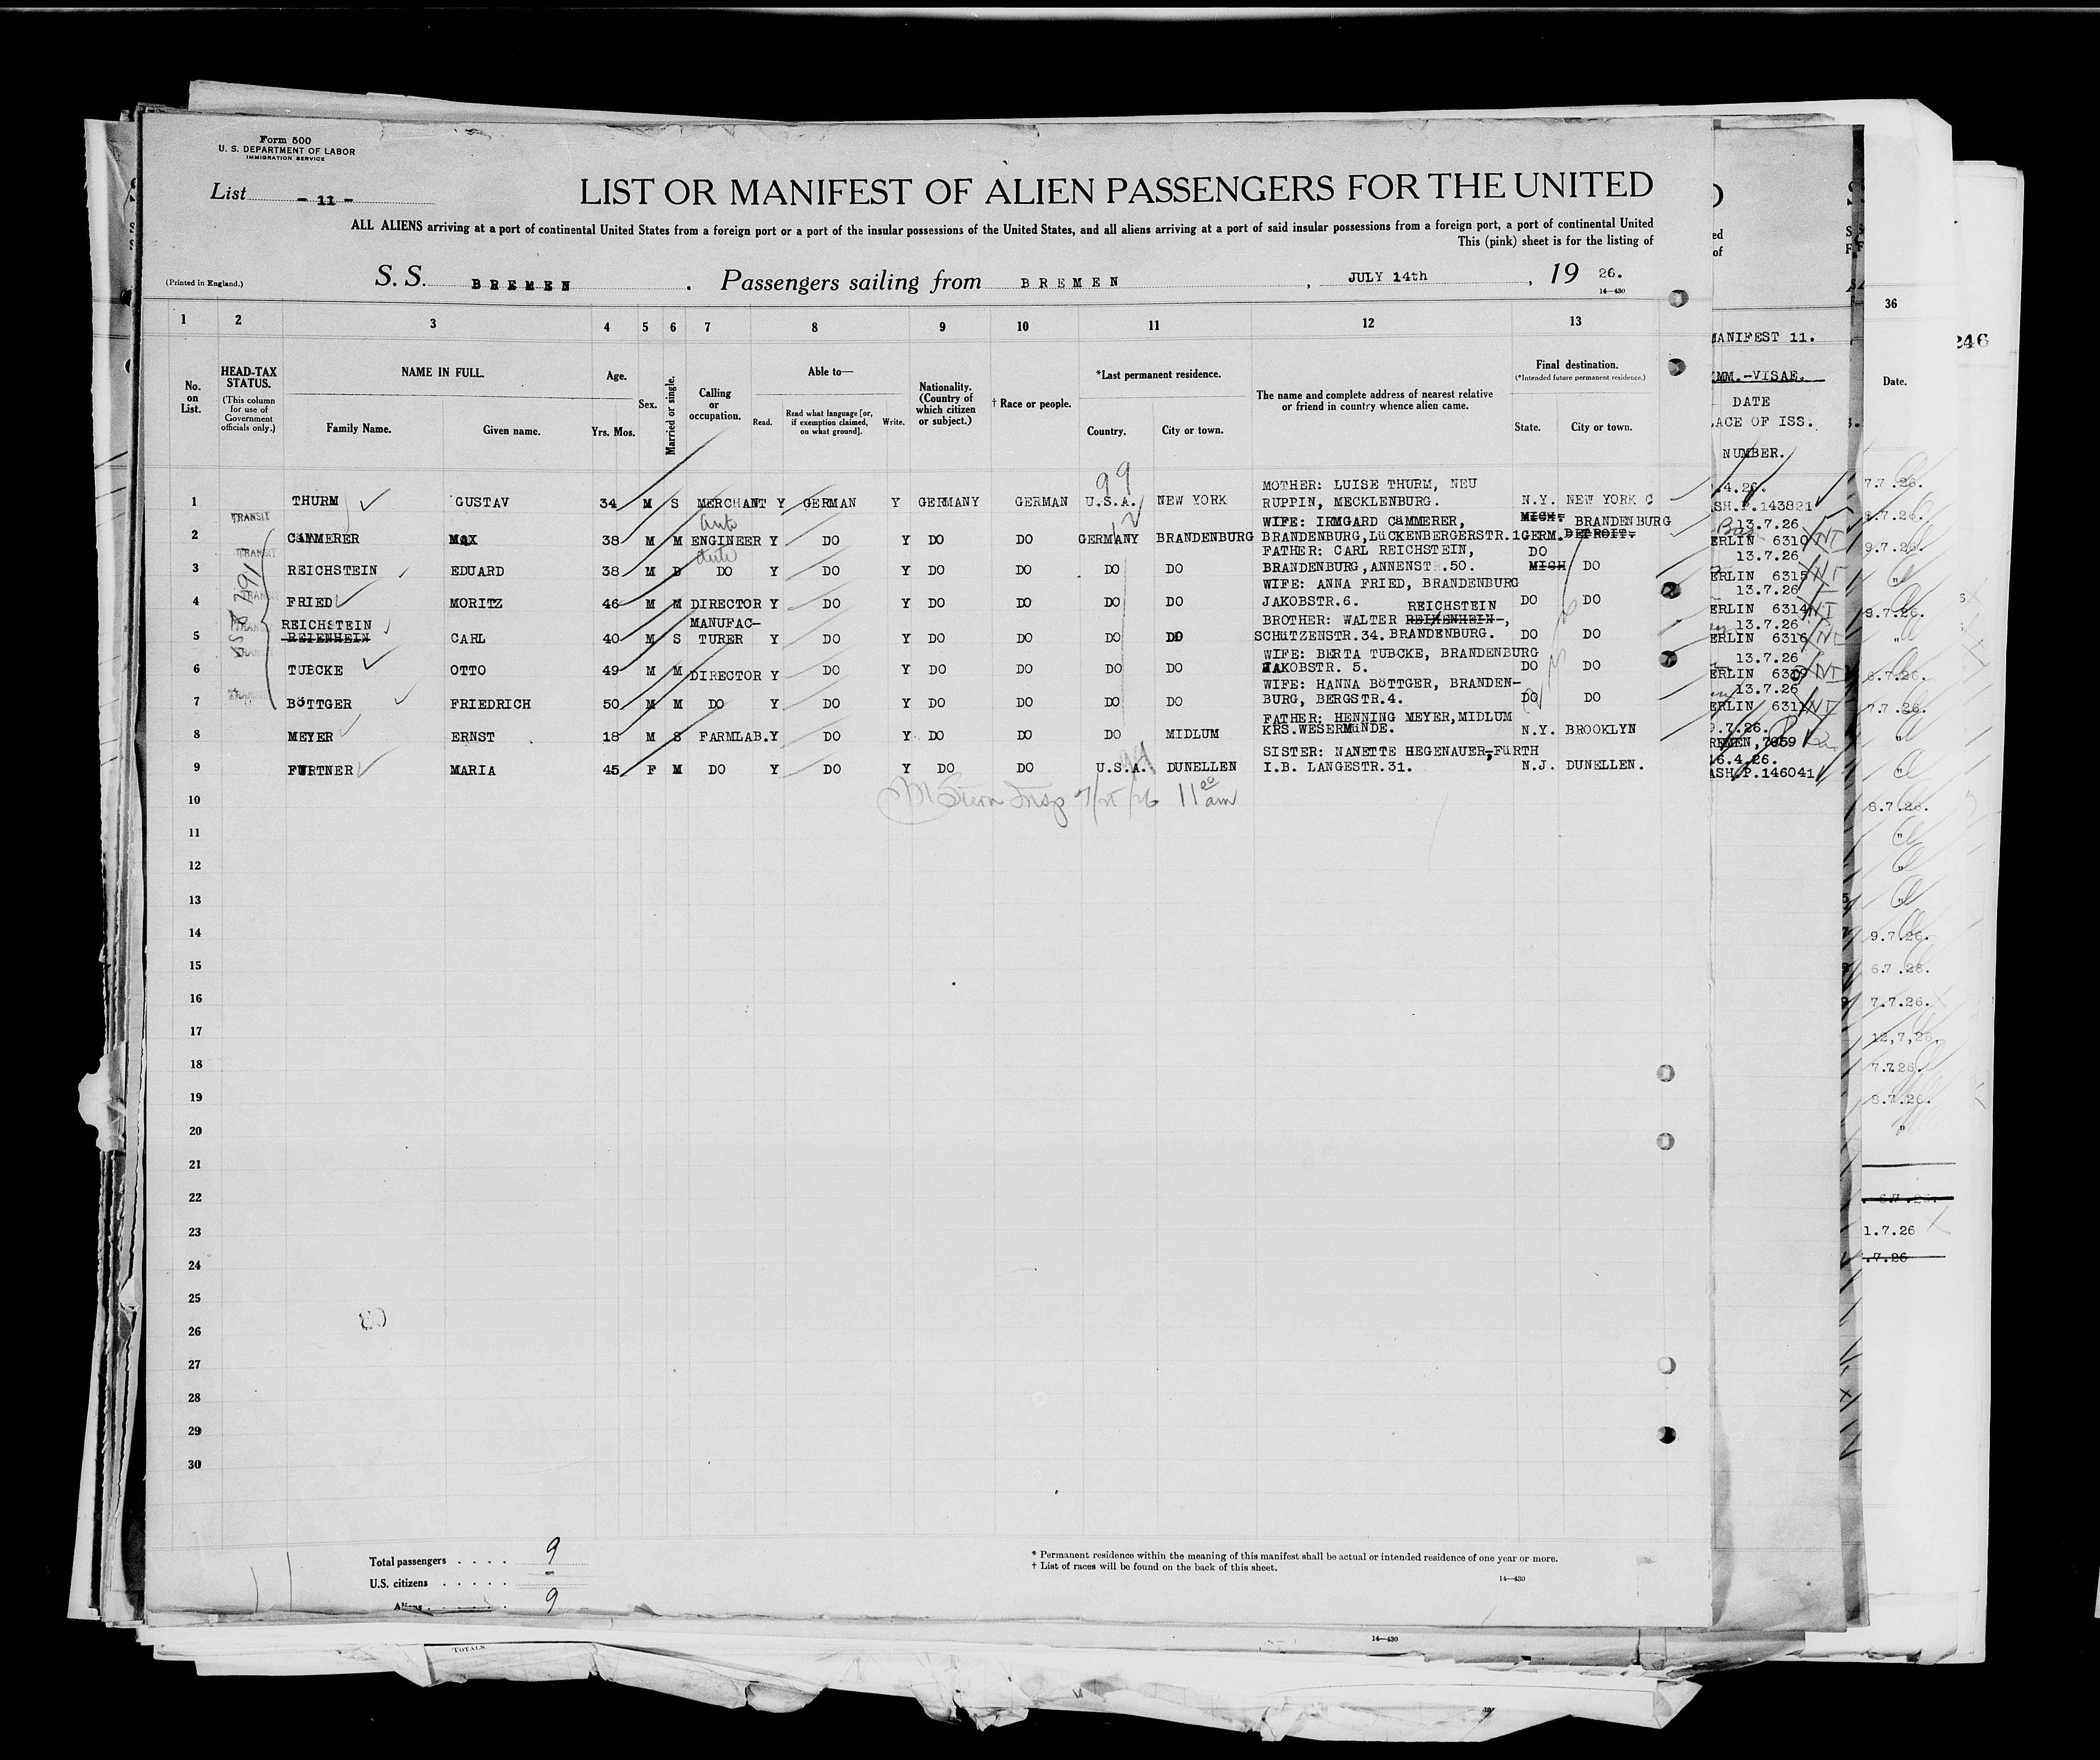 Form 500
U. S. DEPARTMENT OF LABOR
IMMIGRATION SERVICE
List - 11 -
LIST OR MANIFEST OF ALIEN PASSENGERS FOR THE UNITED
ALL ALIENS arriving at a port of continental United States from a foreign port or a port of the insular possessions of the United States, and all aliens arriving at a port of said insular possessions from a foreign port, a port of continental United
This (pink) sheet is for the listing of
(Printed in England.)
S. S. BREMEN . Passengers sailing from BREMEN , JULY 14th , 19 26.
14—430
1 2 3 4 5 6 7 8 9 10 11 12 13
36
246
No. on List.
HEAD-TAX STATUS.
(This column for use of Government officials only.)
NAME IN FULL.
Family Name. Given name.
Age.
Yrs. Mos.
Sex.
Married or single.
Calling or occupation.
Able to—
Read. Read what language [or, if exemption claimed, on what ground]. Write.
Nationality. (Country of which citizen or subject.)
† Race or people.
*Last permanent residence.
Country. City or town.
The name and complete address of nearest relative or friend in country whence alien came.
Final destination.
(*Intended future permanent residence.)
State. City or town.
MANIFEST 11.
IMM.-VISAE.
DATE
PLACE OF ISS.
NUMBER.
Date.
99
1 THURM GUSTAV 34 M S MERCHANT Y GERMAN Y GERMANY GERMAN U.S.A. NEW YORK MOTHER: LUISE THURM, NEU RUPPIN, MECKLENBURG. N.Y. NEW YORK C .4.26. ASH.P.143821
TRANSIT
Auto
2 CäMMERER MAX 38 M M ENGINEER Y DO Y DO DO GERMANY BRANDENBURG WIFE: IRMGARD CäMMERER, BRANDENBURG, LüCKENBERGERSTR.1 MICH. GERM. BRANDENBURG DETROIT. 13.7.26 ERLIN 6310 NT
TRANSIT
Auto
3 REICHSTEIN EDUARD 38 M D DO Y DO Y DO DO DO DO FATHER: CARL REICHSTEIN, BRANDENBURG, ANNENSTR.50. DO MICH DO 13.7.26 ERLIN 6315 NT
TRANSIT
4 FRIED MORITZ 46 M M DIRECTOR Y DO Y DO DO DO DO WIFE: ANNA FRIED, BRANDENBURG JAKOBSTR.6. DO DO 13.7.26 ERLIN 6314 NT
TRANSIT
5 REICHSTEIN REIENHEIN CARL 40 M S MANUFAC-TURER Y DO Y DO DO DO DO BROTHER: WALTER REICHSTEIN REIHENHEIN, SCHüTZENSTR.34. BRANDENBURG. DO DO 13.7.26 ERLIN 6316 NT
TRANSIT
6 TUBCKE OTTO 49 M M DIRECTOR Y DO Y DO DO DO DO WIFE: BERTA TUBCKE, BRANDENBURG JAKOBSTR. 5. DO DO 13.7.26 ERLIN 6319 NT
TRANSIT
7 BöTTGER FRIEDRICH 50 M M DO Y DO Y DO DO DO DO WIFE: HANNA BöTTGER, BRANDEN-BURG, BERGSTR.4. DO DO 13.7.26 ERLIN 6311 NT
8 MEYER ERNST 18 M S FARMLAB. Y DO Y DO DO DO MIDLUM FATHER: HENNING MEYER, MIDLUM KRS.WESERMüNDE. N.Y. BROOKLYN 9.7.26. REMEN, 7059
9 FURTNER MARIA 45 F M DO Y DO Y DO DO U.S.A. DUNELLEN SISTER: NANETTE HEGENAUER-FüRTH I.B. LANGESTR.31. N.J. DUNELLEN. 16.4.26. ASH.P.146041
99
10 M Stern Insp 7/25/26 11 00 am
11
12
13
14
15
16
17
18
19
20
21
22
23
24
25
26
27
28
29
30
7.7.26.
8.7.26.
9.7.26.
"
9.7.26.
"
8.7.26.
7.7.26.
"
"
8.7.26.
"
"
"
9.7.26.
6.7.26.
7.7.26.
12,7,26.
7.7.26.
8.7.26.
"
6.7.26.
1.7.26
.7.26
Total passengers . . . . 9
U.S. citizens . . . . . -
Aliens . . . . 9
* Permanent residence within the meaning of this manifest shall be actual or intended residence of one year or more.
† List of races will be found on the back of this sheet.
14—430
14—430
TOTALS